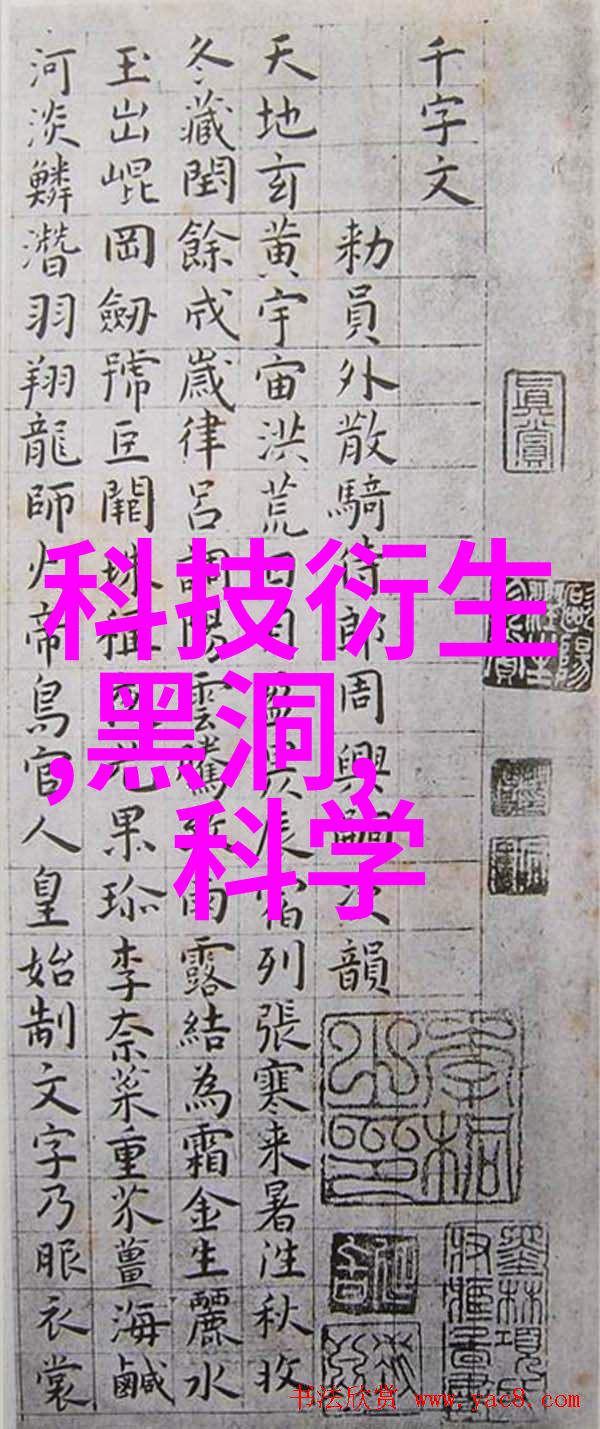 千字文
勑員外散騎侍郎周興嗣次韻
天地玄黃宇宙洪荒日月盈昃辰宿列張寒来暑往秋收
冬藏閏餘成歲律呂調陽雲騰致雨露結為霜金生麗水
玉出崐岡劒號巨闕珠稱夜光果珎李柰菜重芥薑海鹹
河淡鱗潛羽翔龍師火帝鳥官人皇始制文字乃服衣裳
真賞
科技衍生
,黑洞,
科学
书法欣赏 www.yac8.com